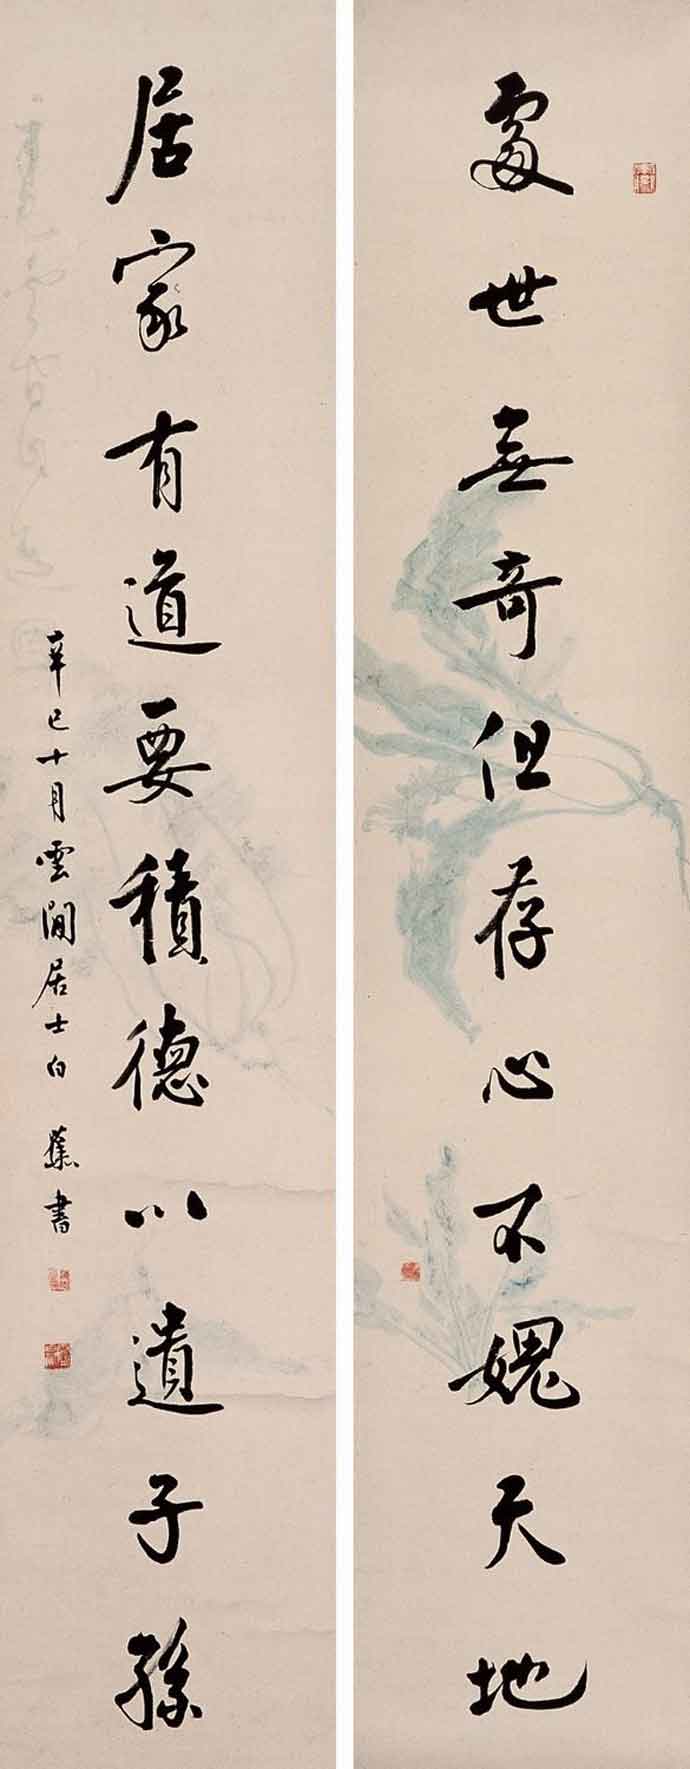 處世無奇但存心不媿天地
居家有道要積德以遺子孫
辛巳十月雲間居士白蕉書